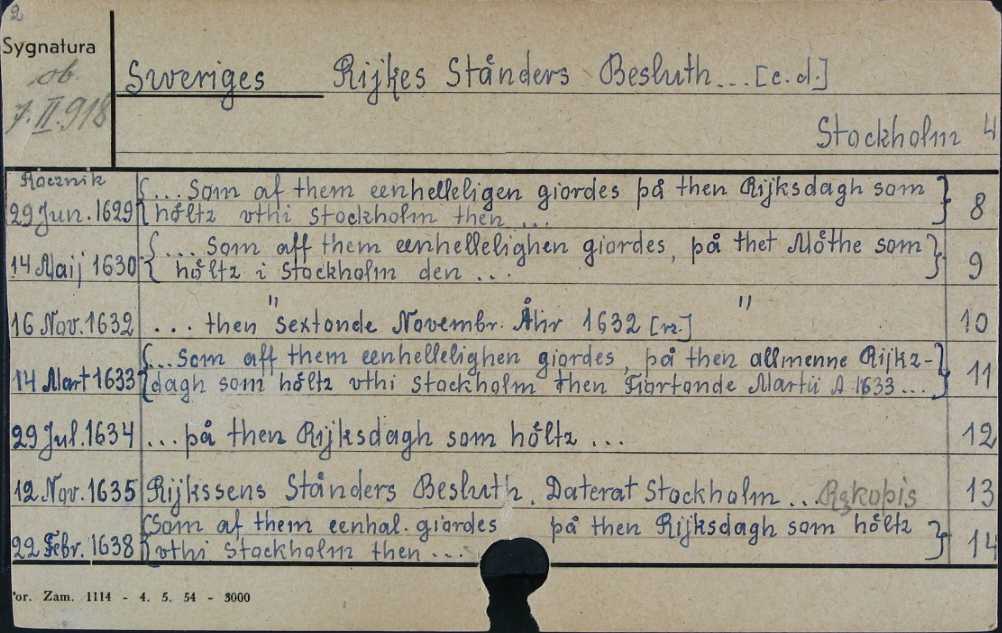 2
Sygnatura
ob.
7.II.918
Sweriges Rijkes Ståndters Besluth... [c.d.]
Stockholm 4
Rocznik
29 Jun. 1629 {...Som af them eenhelleligen giordes på then Rijksdagh som
höltz vthi Stockholm then ...} 8
14 Maij 1630 {...Som aff them eenhellelighen giordes, på thet Möthe som
höltz i Stockholm den ...} 9
" "
16 Nov. 1632 ... then Sextonde Novembr. Åhr 1632 [r.] 10
14 Mart 1633 {...Som aff them eenhellelighen giordes, på then allmenne Rijkz-
dagh som höltz vthi Stockholm then Fiortonde Martii A 1633 ...} 11
29 Jul. 1634 ... på then Rijksdagh som höltz ... 12
12 Nov. 1635 Rijkssens Ständers Besluth. Daterat Stockholm ... Rękopis 13
22 Febr. 1638 {Som af them eenhal. giordes på then Rijksdagh som höltz
vthi Stockholm then ...} 14
or. Zam. 1114 - 4. 5. 54 - 3000